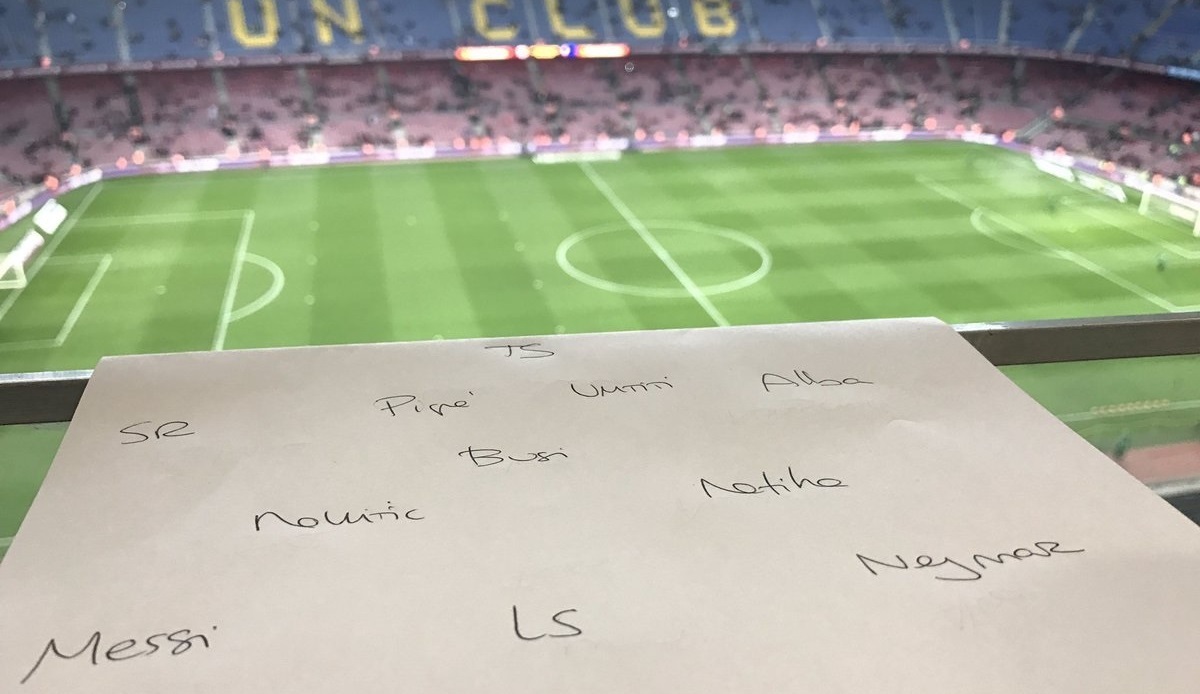 UN CLUB
TS
SR Piqué UMTITI Alba
Busi
Neymar
Messi LS